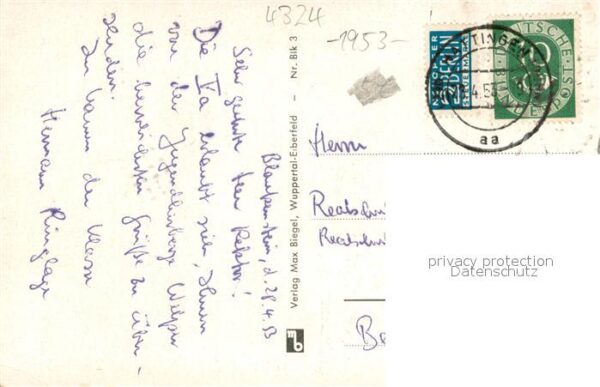 4324
-1953-
Blankenstein, d. 28.4.53
Sehr geehrter Herr Rektor!
Die Va erlaubt sich, Ihnen
von der Jugendherberge Welper
die herzlichsten Grüße zu über-
senden.
Im Namen der Klasse
Hermann Ringlage
Verlag Max Biegel, Wuppertal-Elberfeld – Nr. Blk 3
mb
NOTOPFER
2 BERLIN
STEUERMARKE
HATTINGEN
aa
DEUTSCHE
Herrn
privacy protection
Datenschutz